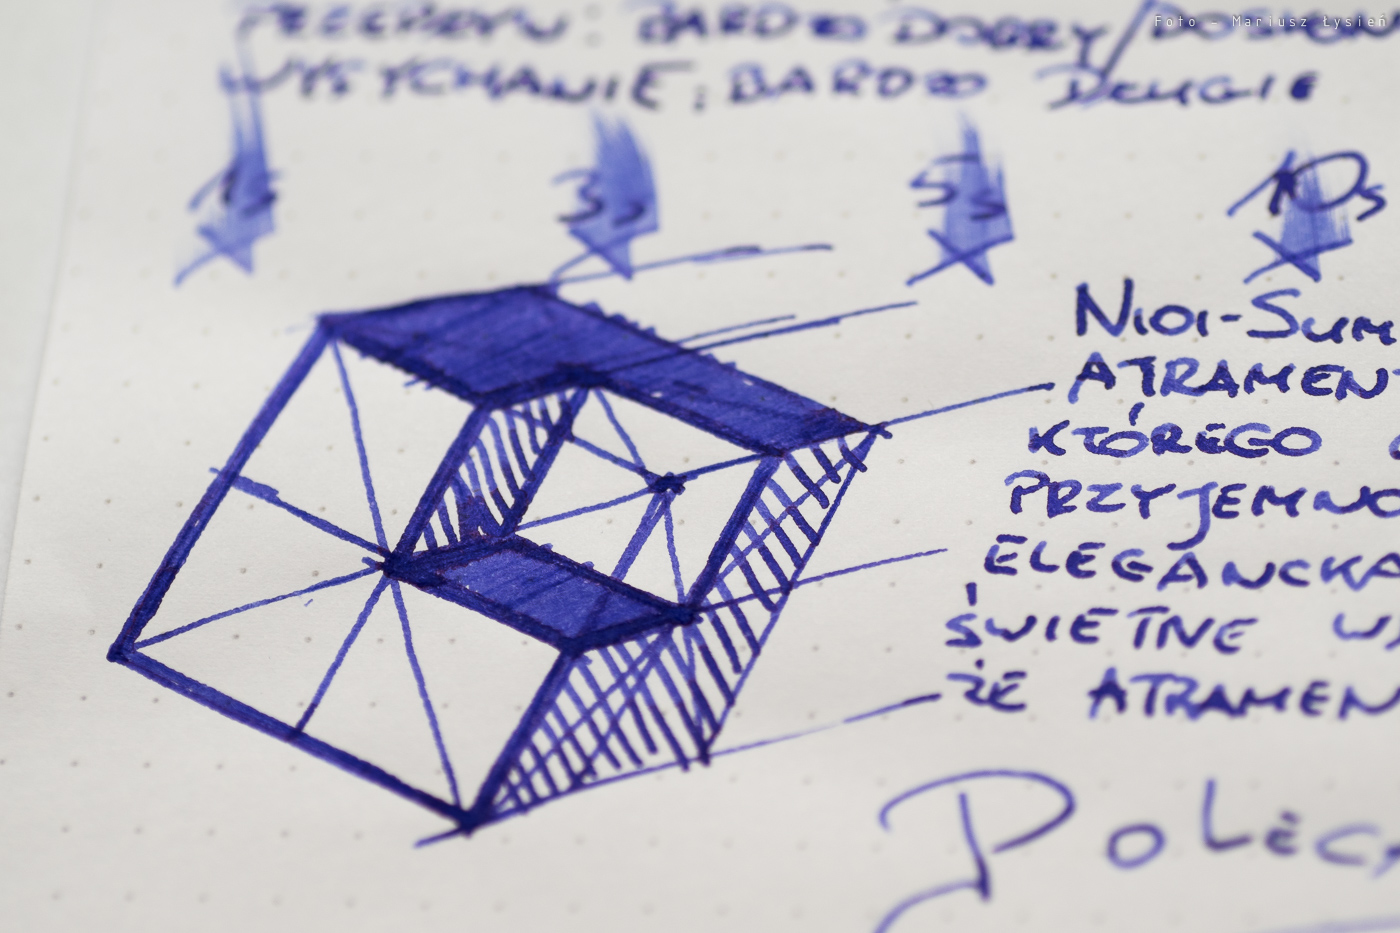 Foto - Mariusz Łysień
PRZEBRYW: BARDZO DOBRY/DOSKON
WYSYCHANIE: BARDZO DŁUGIE
1s 3s 5s 10s
NIOI-SUM
ATRAMENT
KTÓREGO
PRZYJEMNO
ELEGANCKA
ŚWIETNE W
ŻE ATRAMEN
POLECA